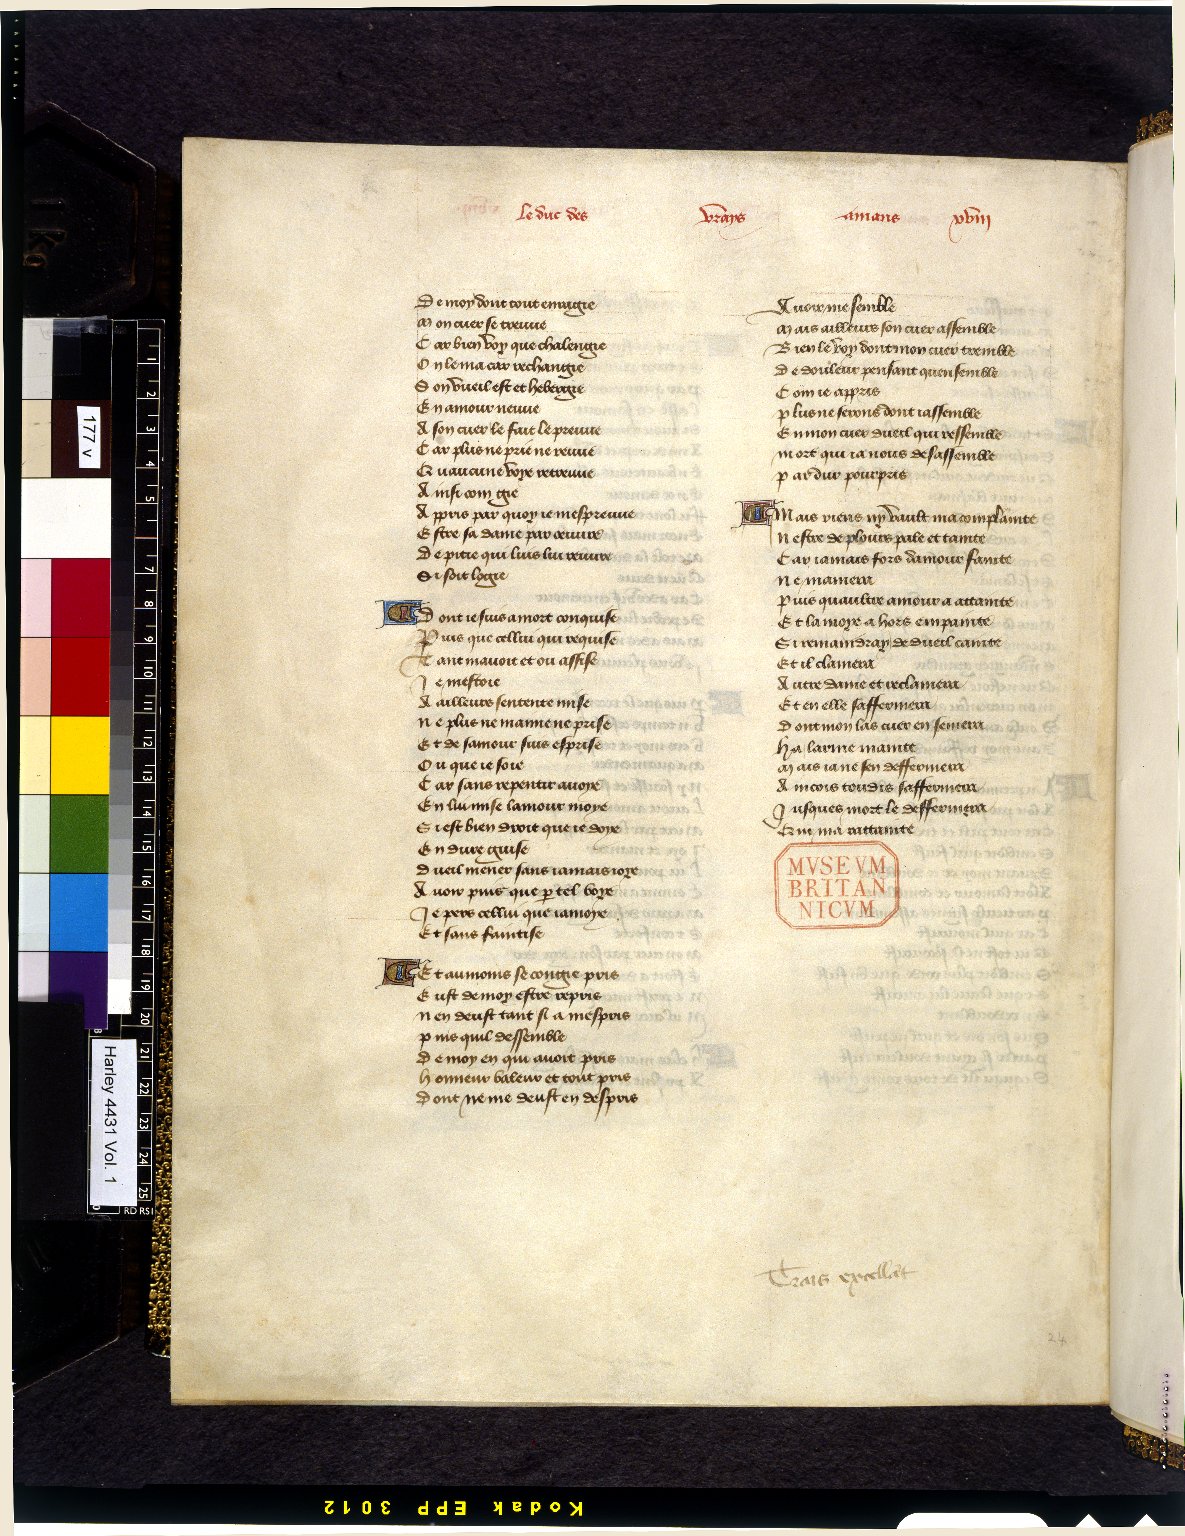 le duc des vrays amans xviii
De moy dont tout enragie
Mon cuer se treuve
Car bien voy que chalengie
On le ma car rechangie
Son vueil est et hebergie
En amour neuve
A son cuer le fait lespreuve
Car plus ne prie ne reuve
Quaucune voye retreuve
Ainsi com gie
Appris par quoy ie mespreuve
Estre sa dame par œuvre
De pitie qui luis lui œuvre
Si soit logie
Dont ie suis a mort conquise
Puis que cellui qui requise
Tant mavoit et ou assise
Je mestoie
A ailleurs sentente mise
Ne plus ne maime ne prise
Et de samour suis esprise
Ou que ie soie
Car sans repentir avoye
En lui mise lamour moye
Si est bien droit que ie doye
En dure guise
Dueil mener sans iamais ioye
Avoir puis que p tel voye
Je pers cellui que iamoye
Et sans faintise
Et aumoins se congie pris
Eust de moy estre repris
Nen deust tant si a mespris
Puis quil dessemble
De moy en qui avoit pris
Honneur valeur et tout pris
Dont ne me deust en despris
Avoir me semble
Mais ailleurs son cuer assemble
Bien le voy dont mon cuer tremble
De douleur pensant quensemble
Com ie appris
Plus ne serons dont iassemble
En mon cuer dueil qui ressemble
Mort qui ia nous desassemble
Par dur pourpris
Mais riens ny vault ma complainte
Nestre de plours pale et tainte
Car iamais fors damour fainte
Ne mamera
Puis quaultre amour a attainte
Et la moye a hors empainte
Si remaindray de dueil cainte
Et il clamera
Autre dame et reclamera
Et en elle saffermera
Dont mon las cuer en semera
Ha larme mainte
Mais ia ne sen deffermera
Aincois toudis saffermera
Jusques mort le deffermera
Qui ma rattainte
MVSEVM
BRITAN
NICVM
24
177 v
Harley 4431 Vol. 1
Kodak EPP 3012